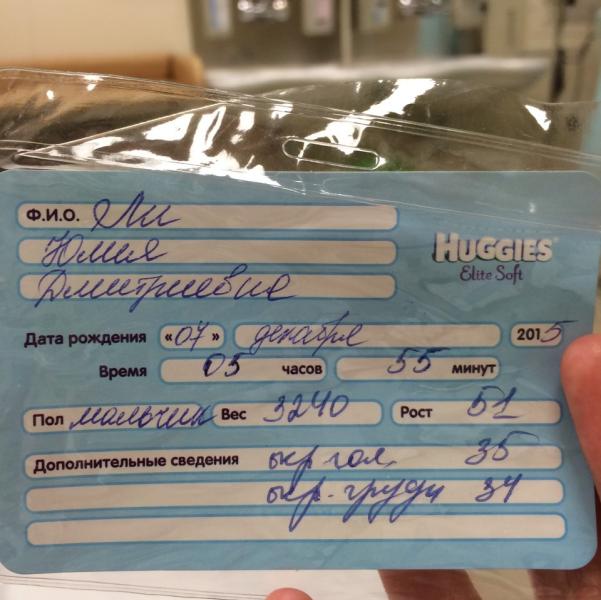 Ф.И.О. Ли
Юлия
Дмитриевна
HUGGIES
Elite Soft
Дата рождения «07» декабря 2015
Время 05 часов 55 минут
Пол мальчик Вес 3240 Рост 51
Дополнительные сведения окр гол. 35
окр. груди 34